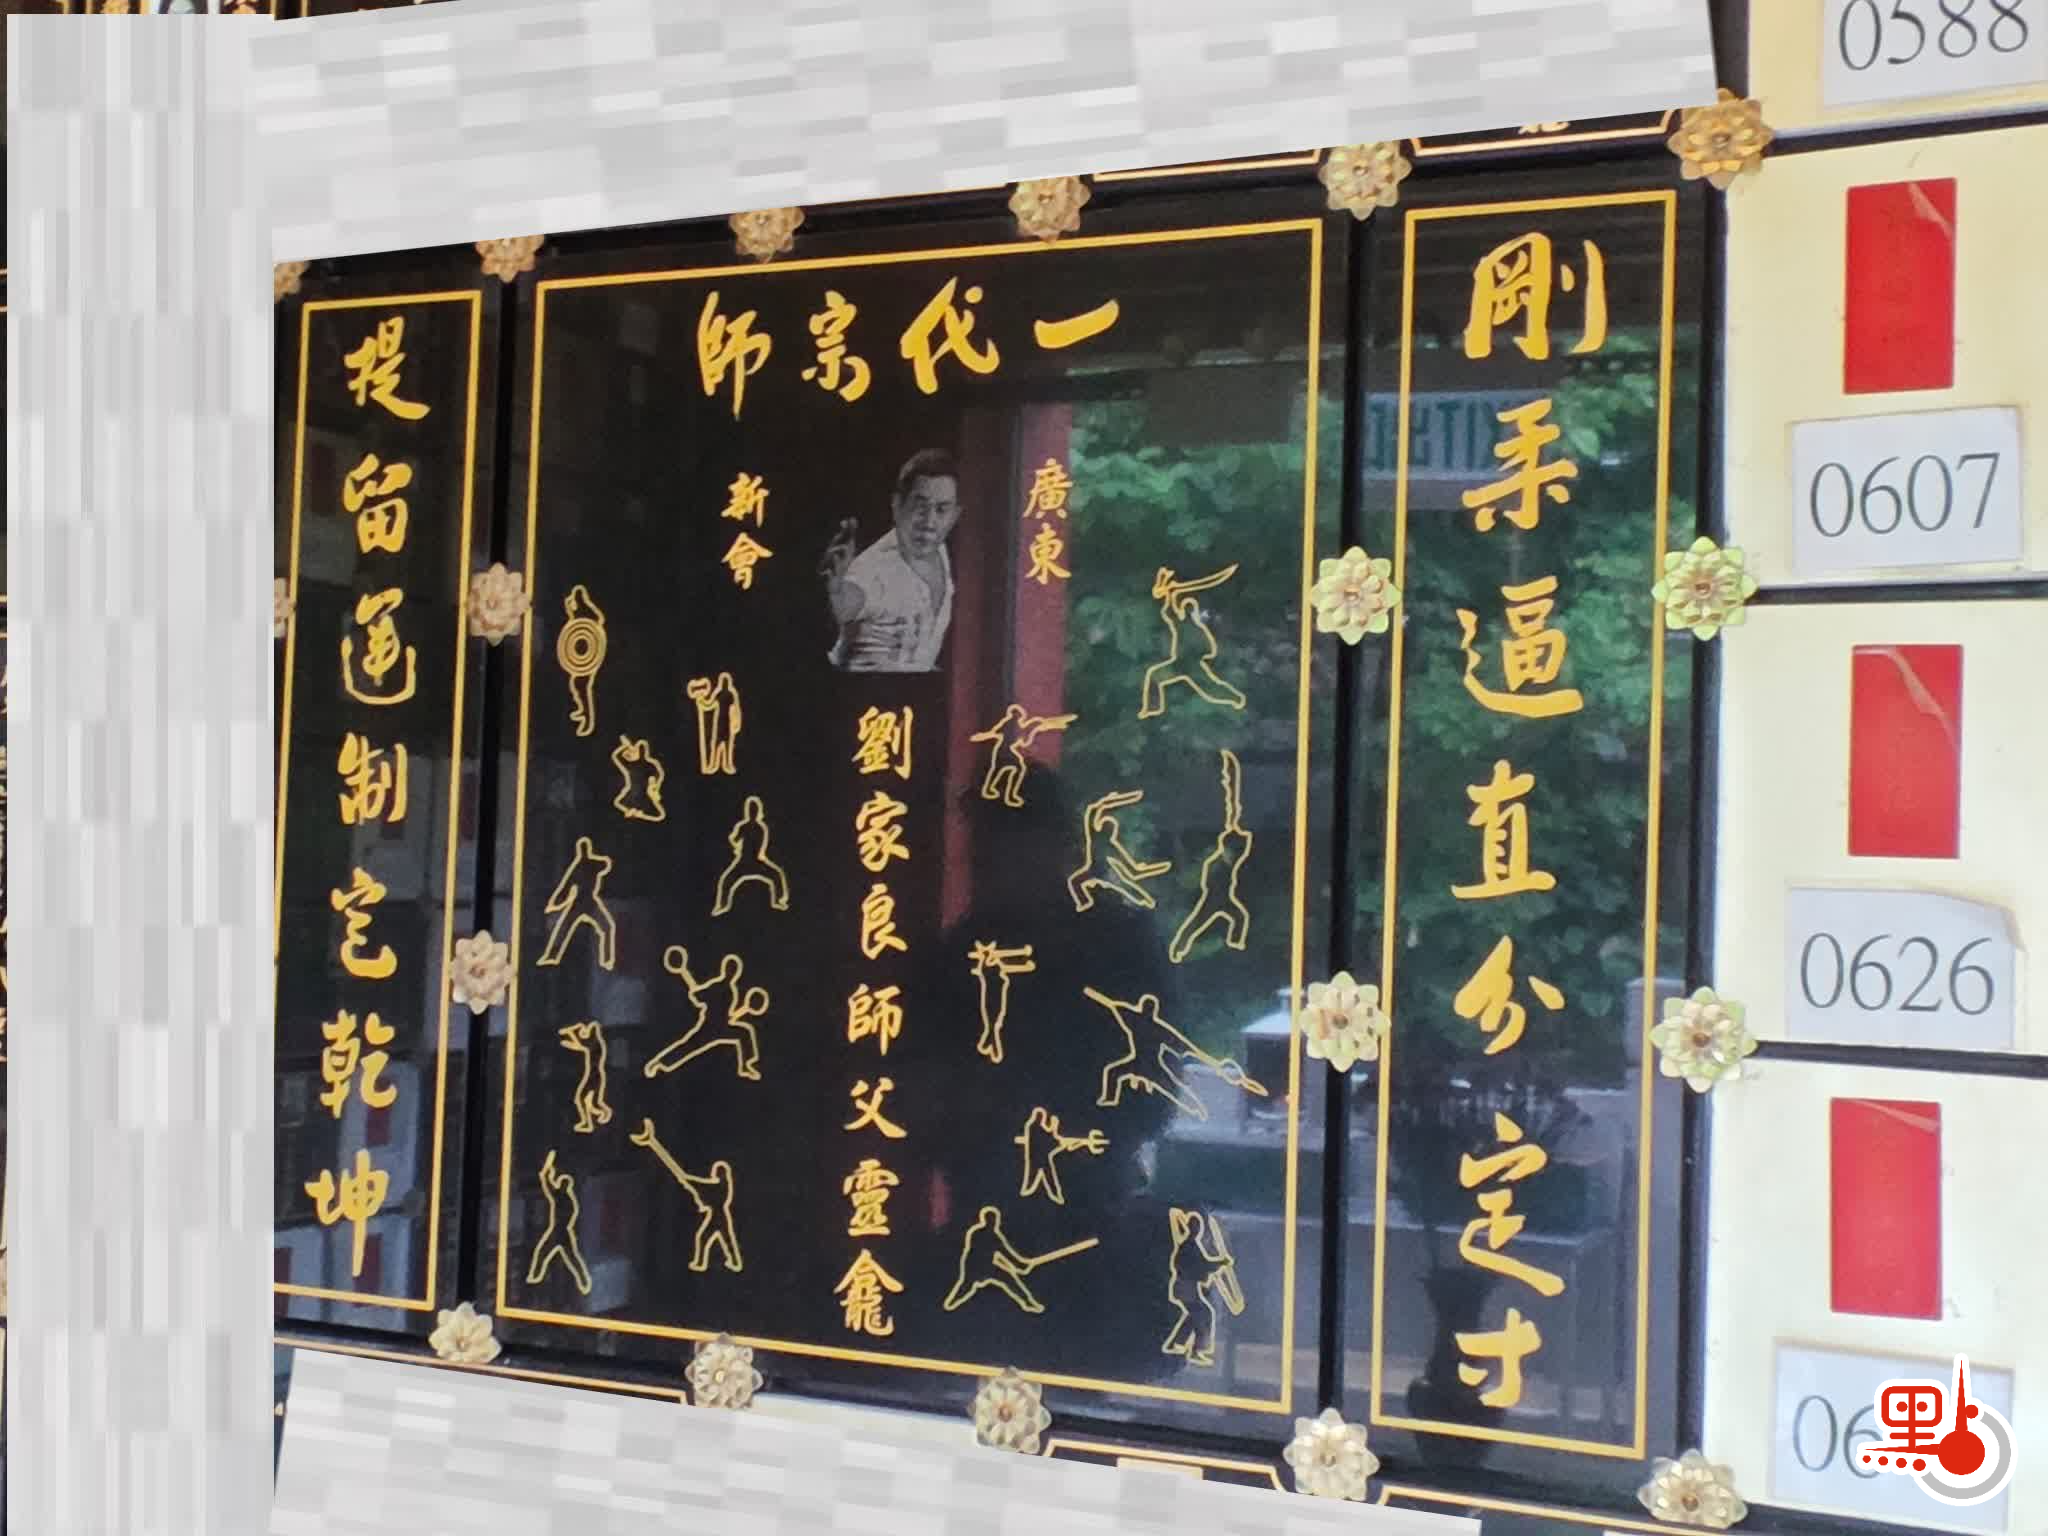 一代宗師
廣東
新會
劉家良師父靈龕
剛柔逼直分定寸
提留運制定乾坤
0588
0607
0626